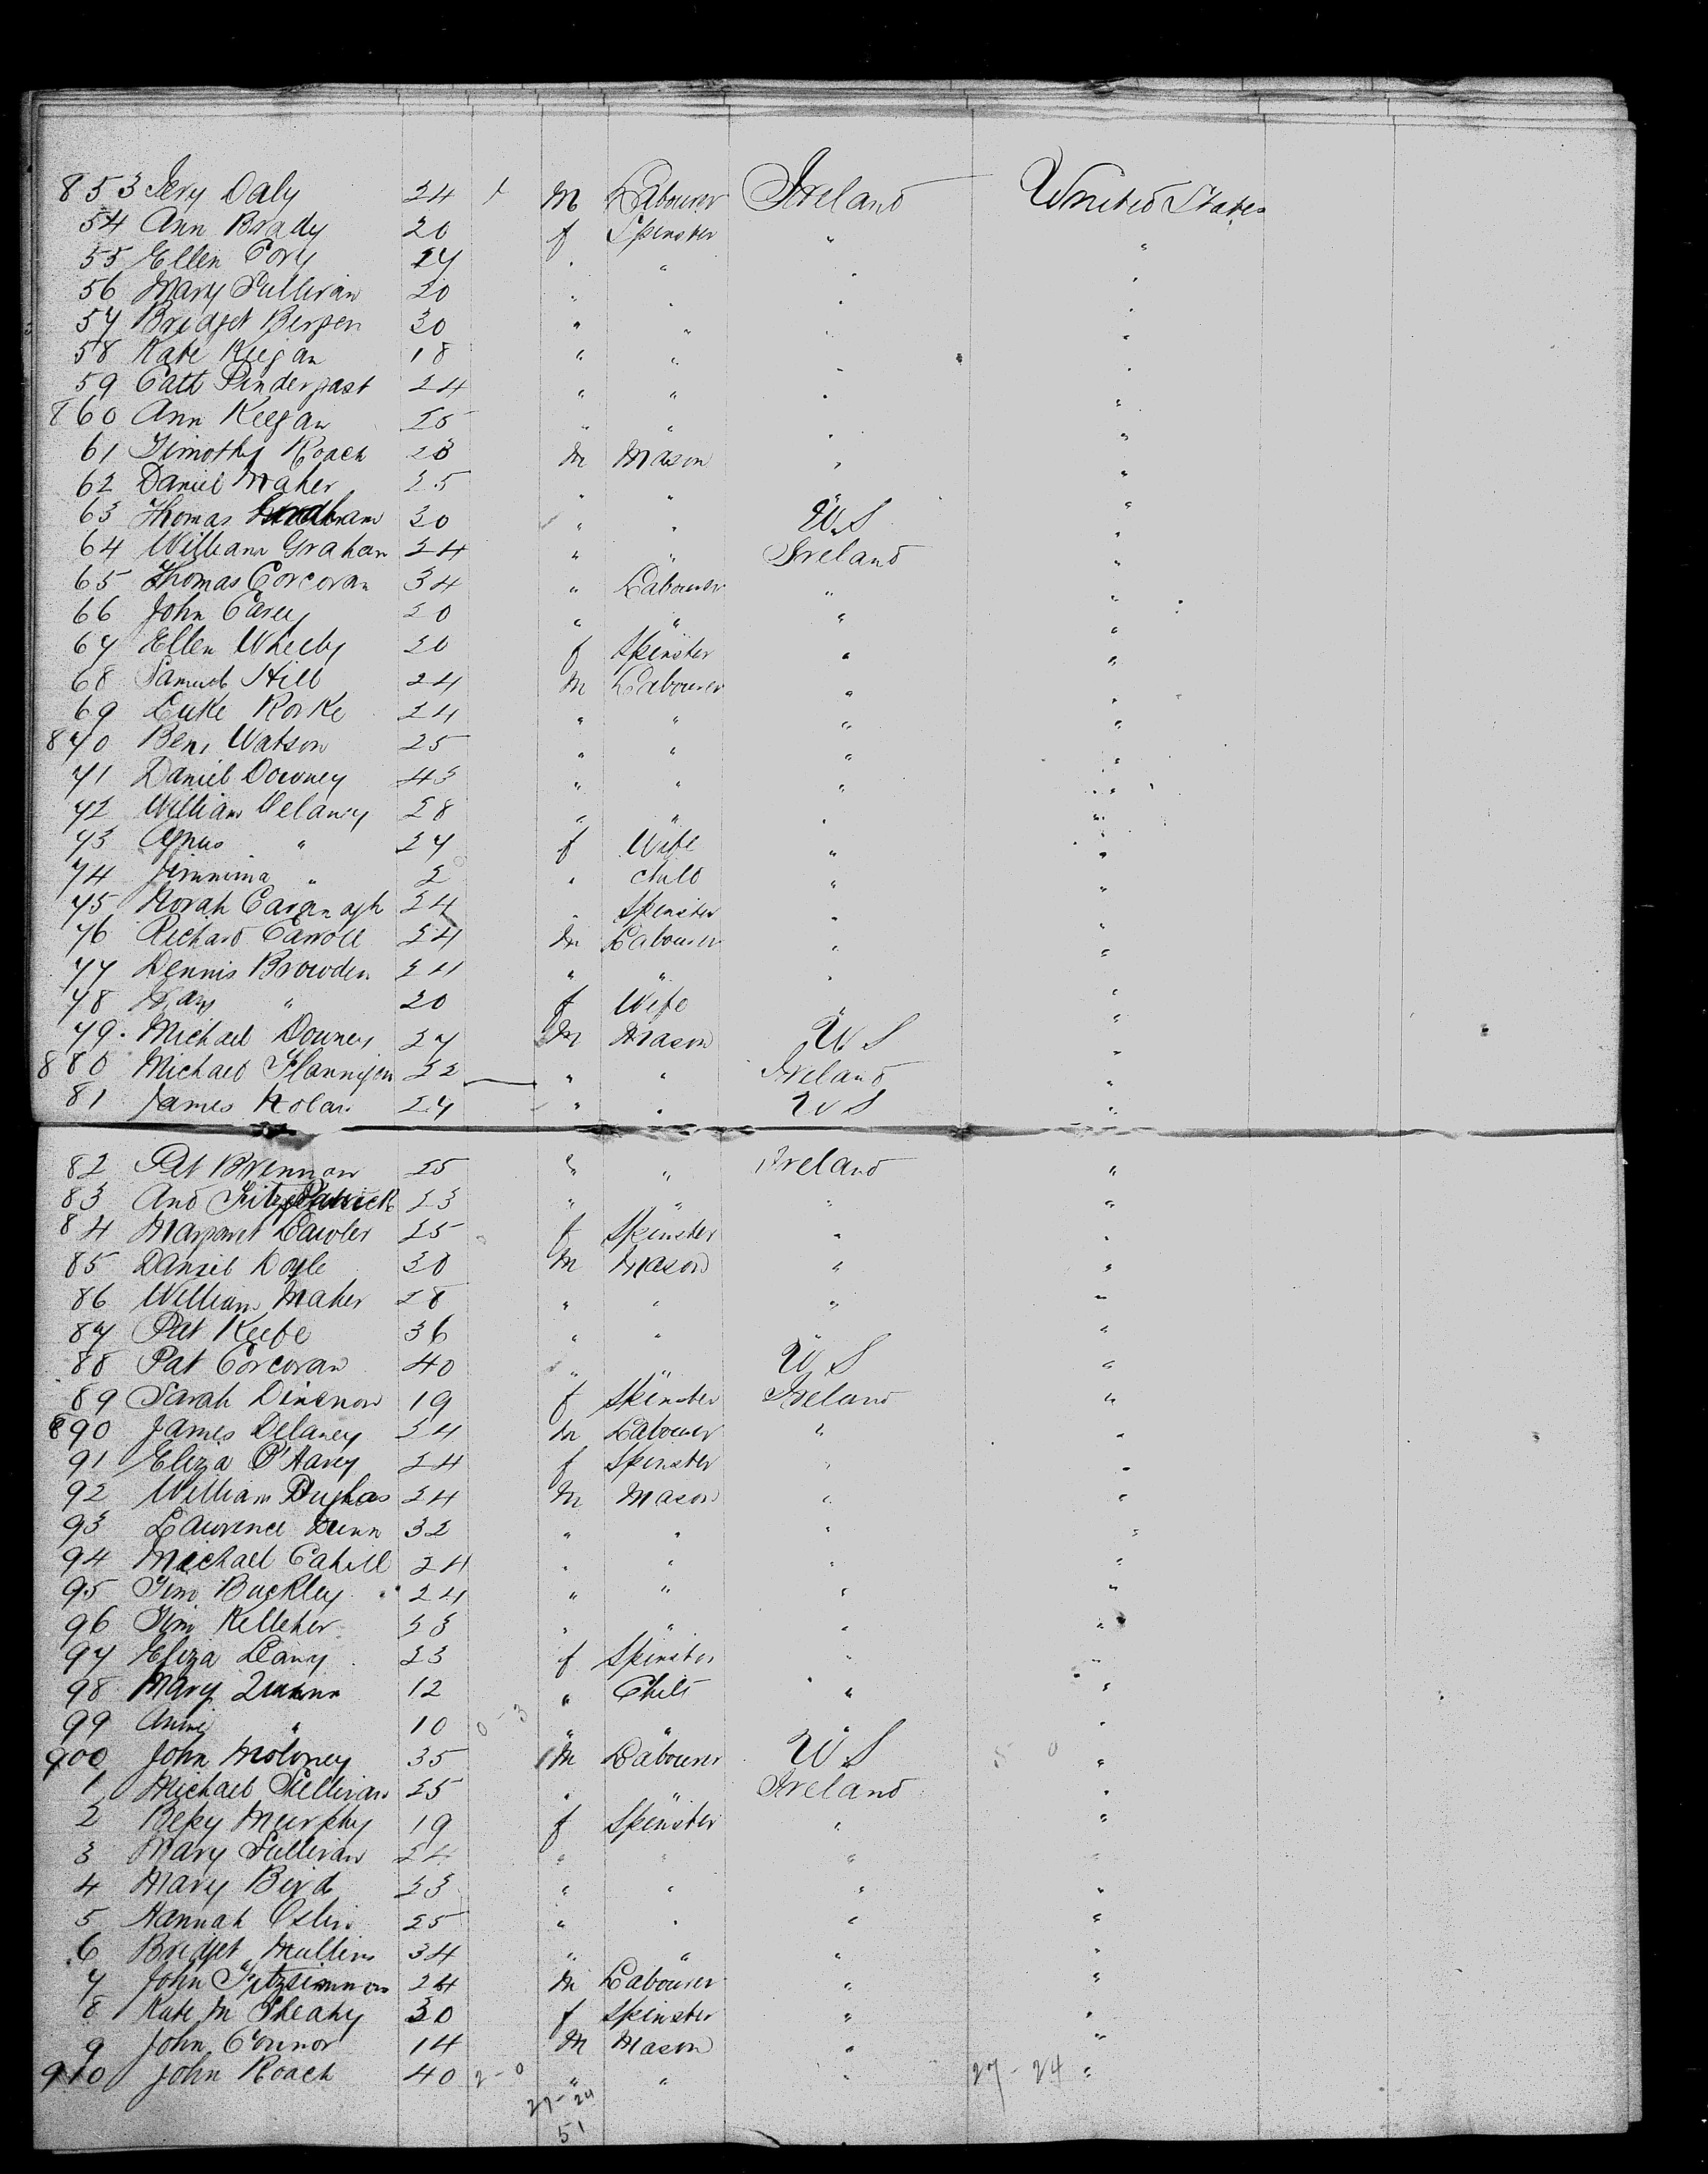 853 Jery Daly 24 M Labourer Ireland United States
54 Ann Brady 20 f Spinster " "
55 Ellen Cory 27 " " " "
56 Mary Sullivan 20 " " " "
57 Bridget Bergen 30 " " " "
58 Kate Keegan 18 " " " "
59 Cath Pindergast 24 " " " "
860 Ann Keegan 25 " " " "
61 Timothy Roach 23 M Mason " "
62 Daniel Maher 25 " " " "
63 Thomas 30 " " U.S "
64 William Graham 24 " " Ireland "
65 Thomas Corcoran 34 " Labourer " "
66 John Carey 20 " " " "
67 Ellen Wheeby 20 f Spinster " "
68 Samuel Hill 24 M Labourer " "
69 Luke Rorke 24 " " " "
870 Benj Watson 25 " " " "
71 Daniel Downey 43 " " " "
72 William Delaney 28 " " " "
73 Agnus " 27 f Wife " "
74 Jimmima " 2 " Child " "
75 Norah Cavanagh 24 " Spinster " "
76 Richard Carroll 24 M Labourer " "
77 Dennis Browden 24 " " " "
78 Mary " 20 f Wife " "
79 Michael Downey 27 M Mason U.S "
880 Michael Flannigan 22 " " Ireland "
81 James Nolan 27 " " U S "
82 Pat Brennan 25 " " Ireland "
83 And Fitzpatrick 23 " " " "
84 Margaret Lawler 25 f Spinster " "
85 Daniel Doyle 30 M Mason " "
86 William Maher 28 " " " "
87 Pat Keefe 36 " " " "
88 Pat Corcoran 40 " " U.S "
89 Sarah Dinenow 19 f Spinster Ireland "
890 James Delaney 24 M Labourer " "
91 Eliza O'Harey 24 f Spinster " "
92 William Dughas 24 M Mason " "
93 Lawrence Dunn 32 " " " "
94 Michael Cahill 24 " " " "
95 Tim Buckley 24 " " " "
96 Tim Kelleher 23 " " " "
97 Eliza Leany 23 f Spinster " "
98 Mary Quinn 12 " Child " "
99 Anne " 10 0-3 " " " "
900 John Moloney 35 M Labourer U.S 5 0 "
1 Michael Sullivan 25 " " Ireland "
2 Bessy Murphy 19 f Spinster " "
3 Mary Sullivan 24 " " " "
4 Mary Bird 23 " " " "
5 Hannah 25 " " " "
6 Bridget Mullins 34 " " " "
7 John Fitzsimmon 24 M Labourer " "
8 Kate M Sheahy 30 f Spinster " "
9 John Connor 14 M Mason " "
910 John Roach 40 2-0 " " " 27-24 "
27-24
51